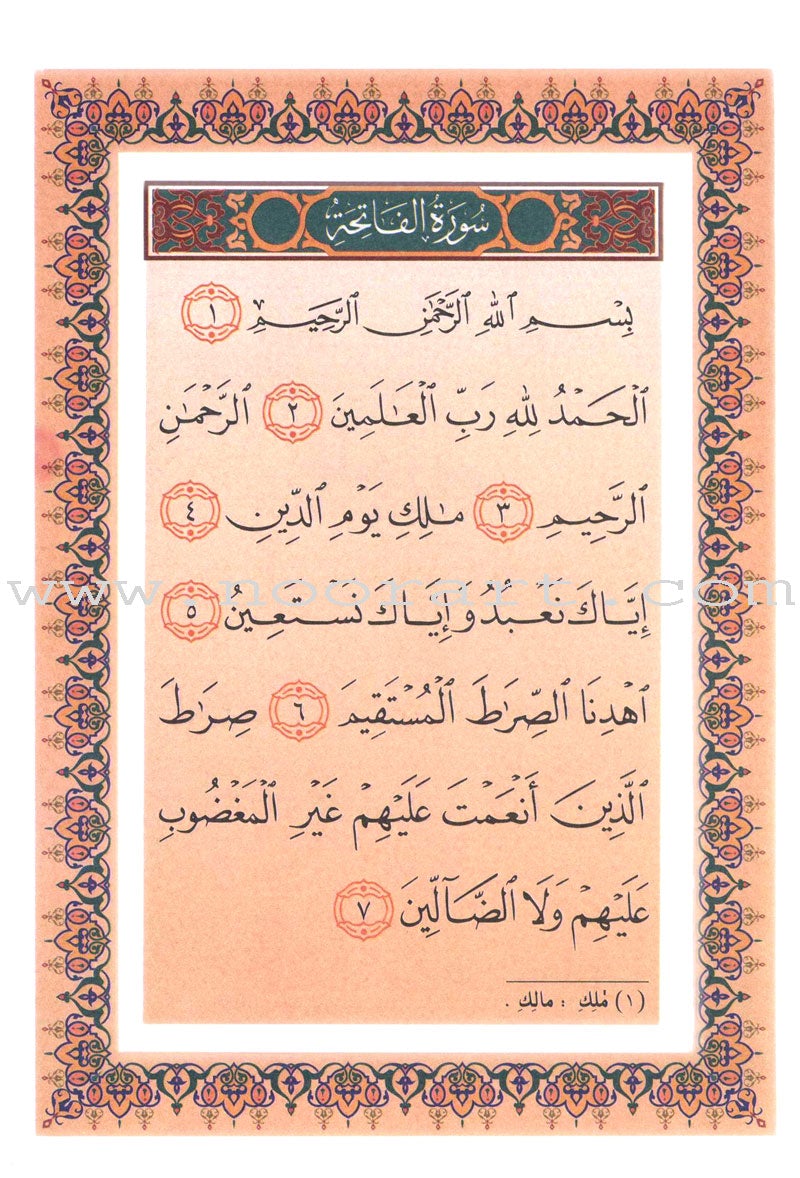 سُورَةُ الفَاتِحَةِ
بِسْمِ ٱللَّهِ ٱلرَّحْمَٰنِ ٱلرَّحِيمِ ١
ٱلْحَمْدُ لِلَّهِ رَبِّ ٱلْعَٰلَمِينَ ٢ ٱلرَّحْمَٰنِ
ٱلرَّحِيمِ ٣ مَٰلِكِ يَوْمِ ٱلدِّينِ ٤
www.noorart.com
إِيَّاكَ نَعْبُدُ وَإِيَّاكَ نَسْتَعِينُ ٥
ٱهْدِنَا ٱلصِّرَٰطَ ٱلْمُسْتَقِيمَ ٦ صِرَٰطَ
ٱلَّذِينَ أَنْعَمْتَ عَلَيْهِمْ غَيْرِ ٱلْمَغْضُوبِ
عَلَيْهِمْ وَلَا ٱلضَّآلِّينَ ٧
(١) مَٰلِكِ : مالِكِ .